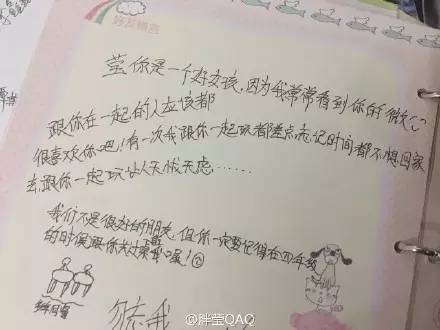 好友留言
莹,你是一个好女孩,因为我常常看到你的微笑
跟你在一起的人应该都
很喜欢你吧!有一次我跟你一起玩都差点忘记时间都不想回家
去,跟你一起玩让人无忧无虑……
我们不是很好的朋友,但你一定要记得在四年级
的时候跟你
喔!
@胖莹QAQ